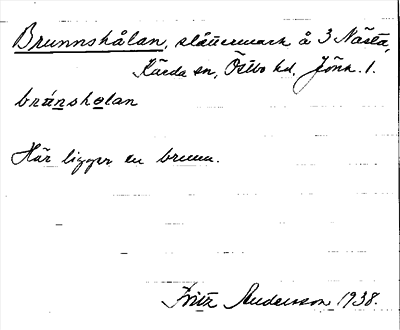 Brunnshålan, slåttermark å 3 Nästa,
Kärda sn, Östbo hd, Jönk. l.
brúnshålan
Här ligger en brunn.
Fritz Andersson 1938.